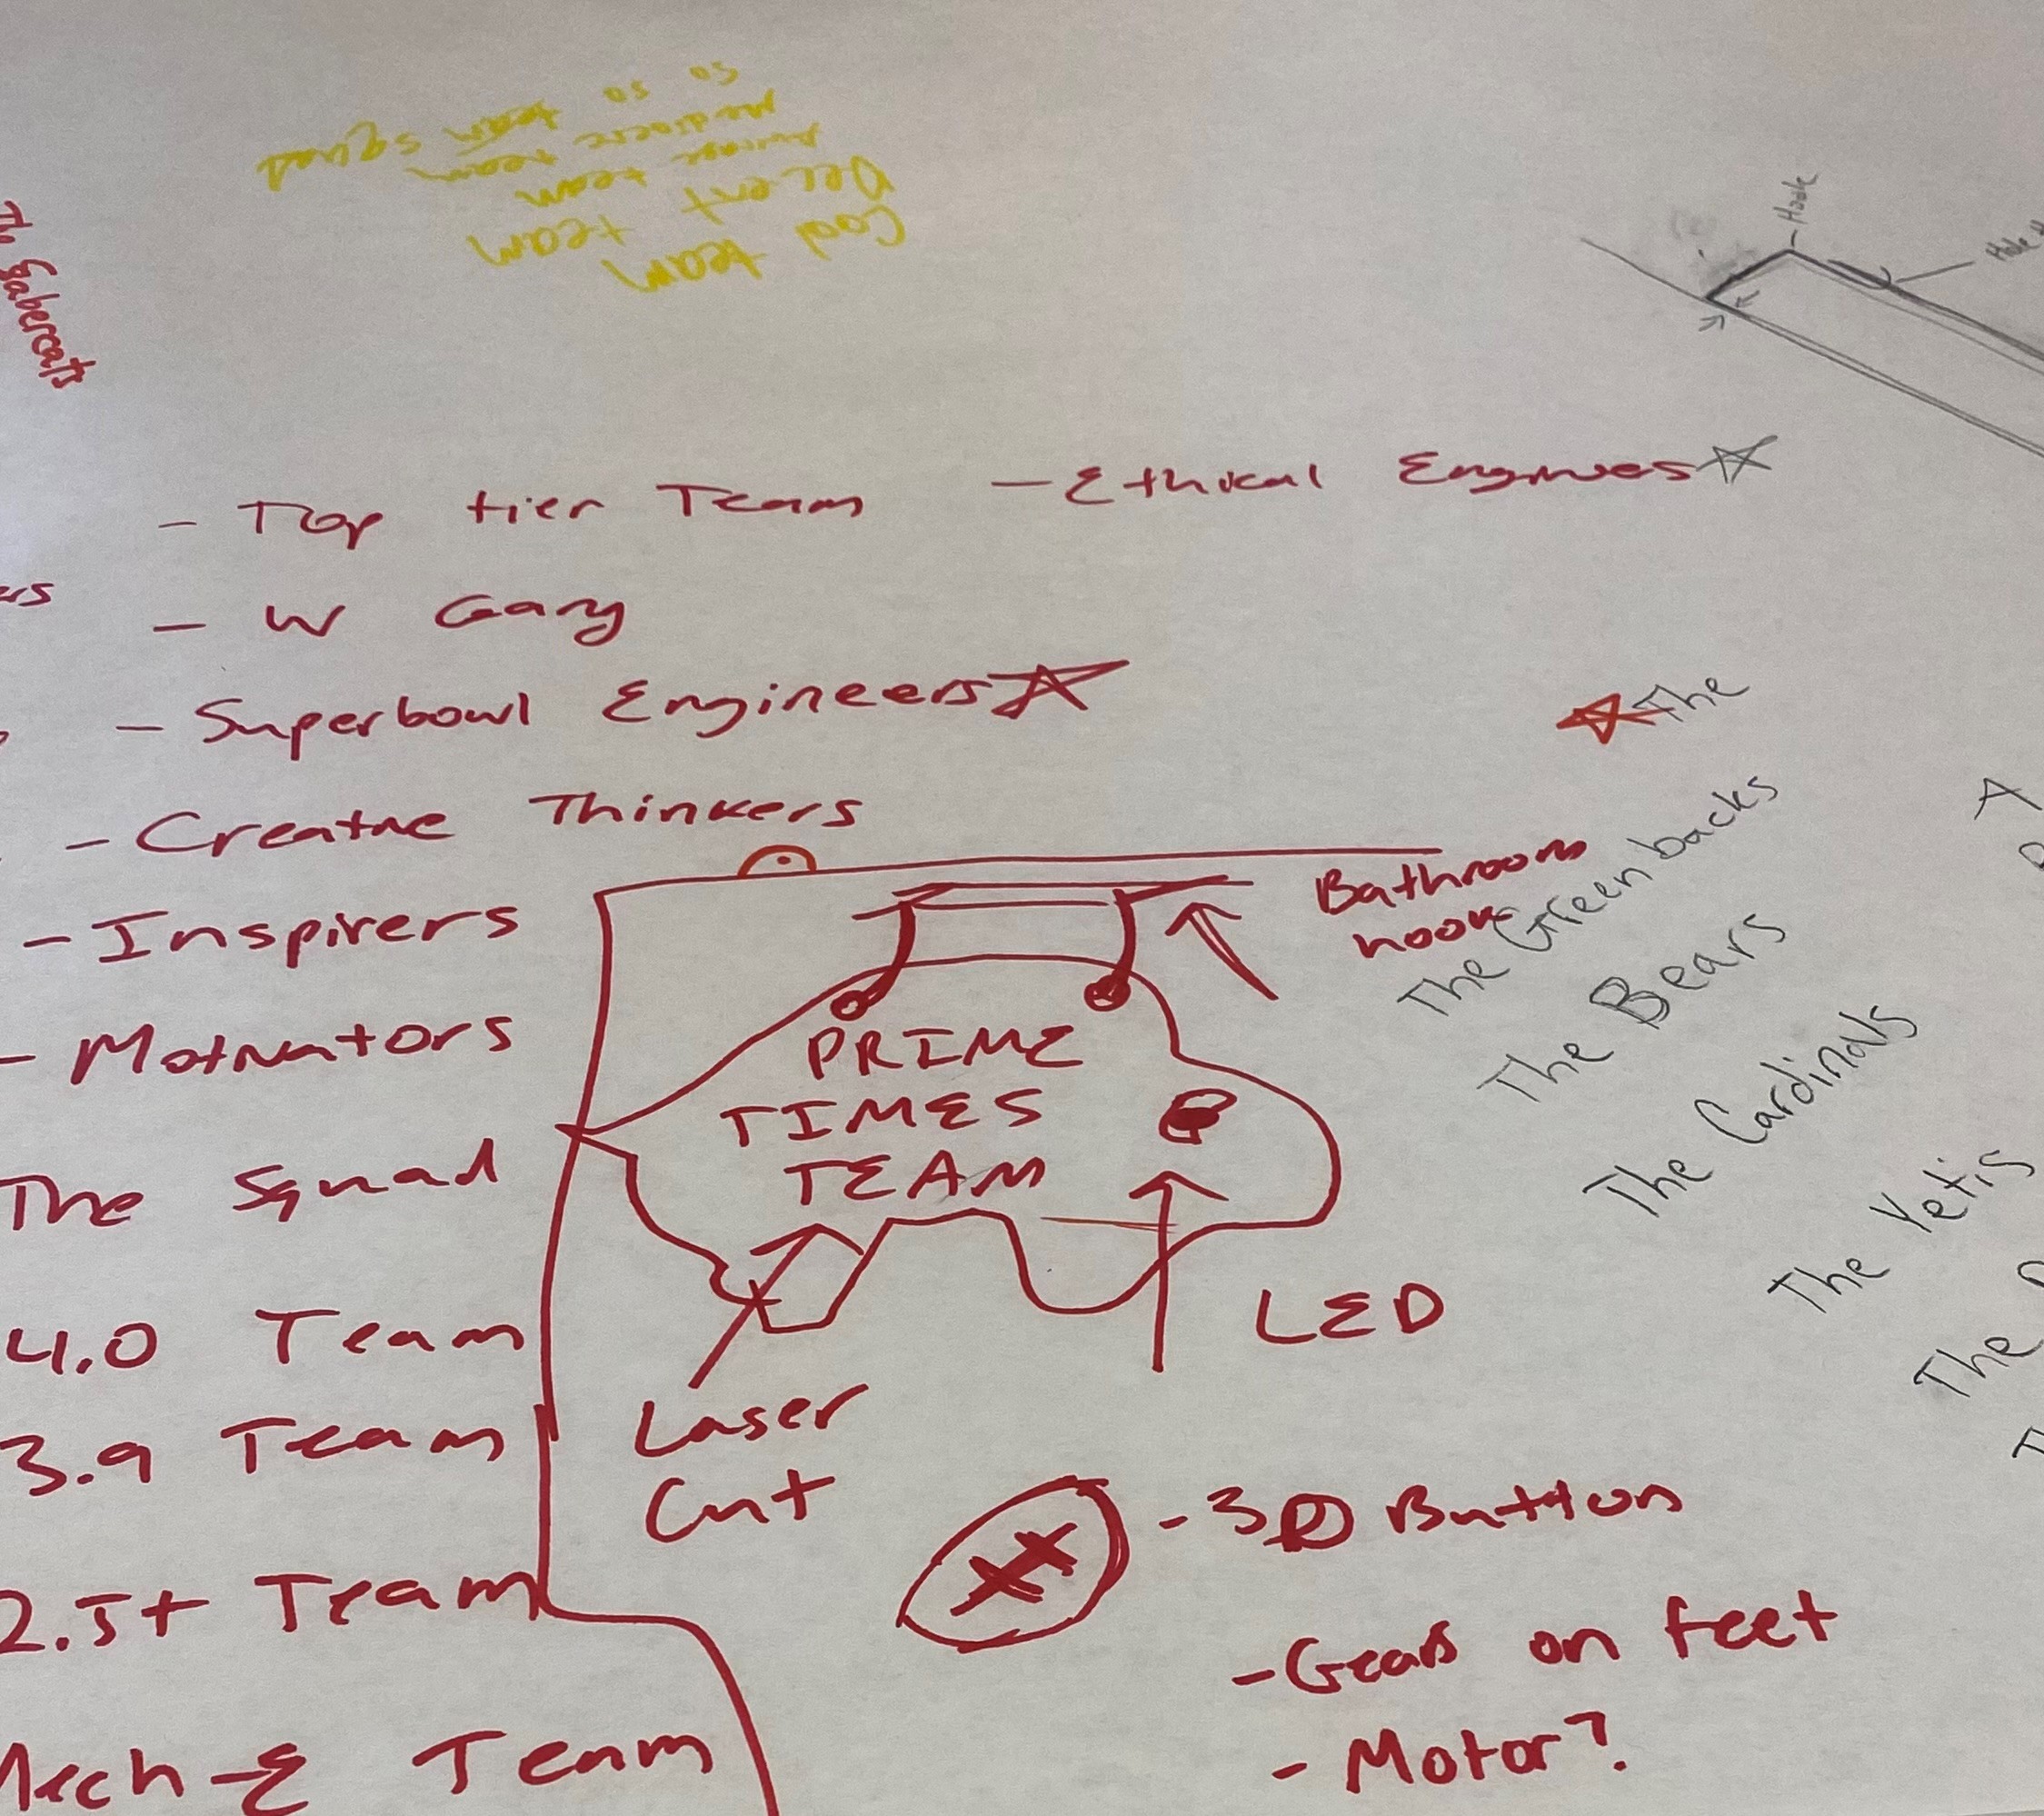 so so team squad
Mediocre team
Average team
Decent team
Good team
The Sabercats
Hook
- Top tier Team
- Ethical Engines
- W Gary
- Superbowl Engineers
- Creative Thinkers
- Inspirers
- Motivators
The Squad
4.0 Team
3.9 Team
2.5+ Team
Mech-E Team
Bathroom
hook
PRIME
TIMES
TEAM
LED
Laser
Cut
- 3D Button
- Gears on feet
- Motor?
The
The Greenbacks
The Bears
The Cardinals
The Yetis
The